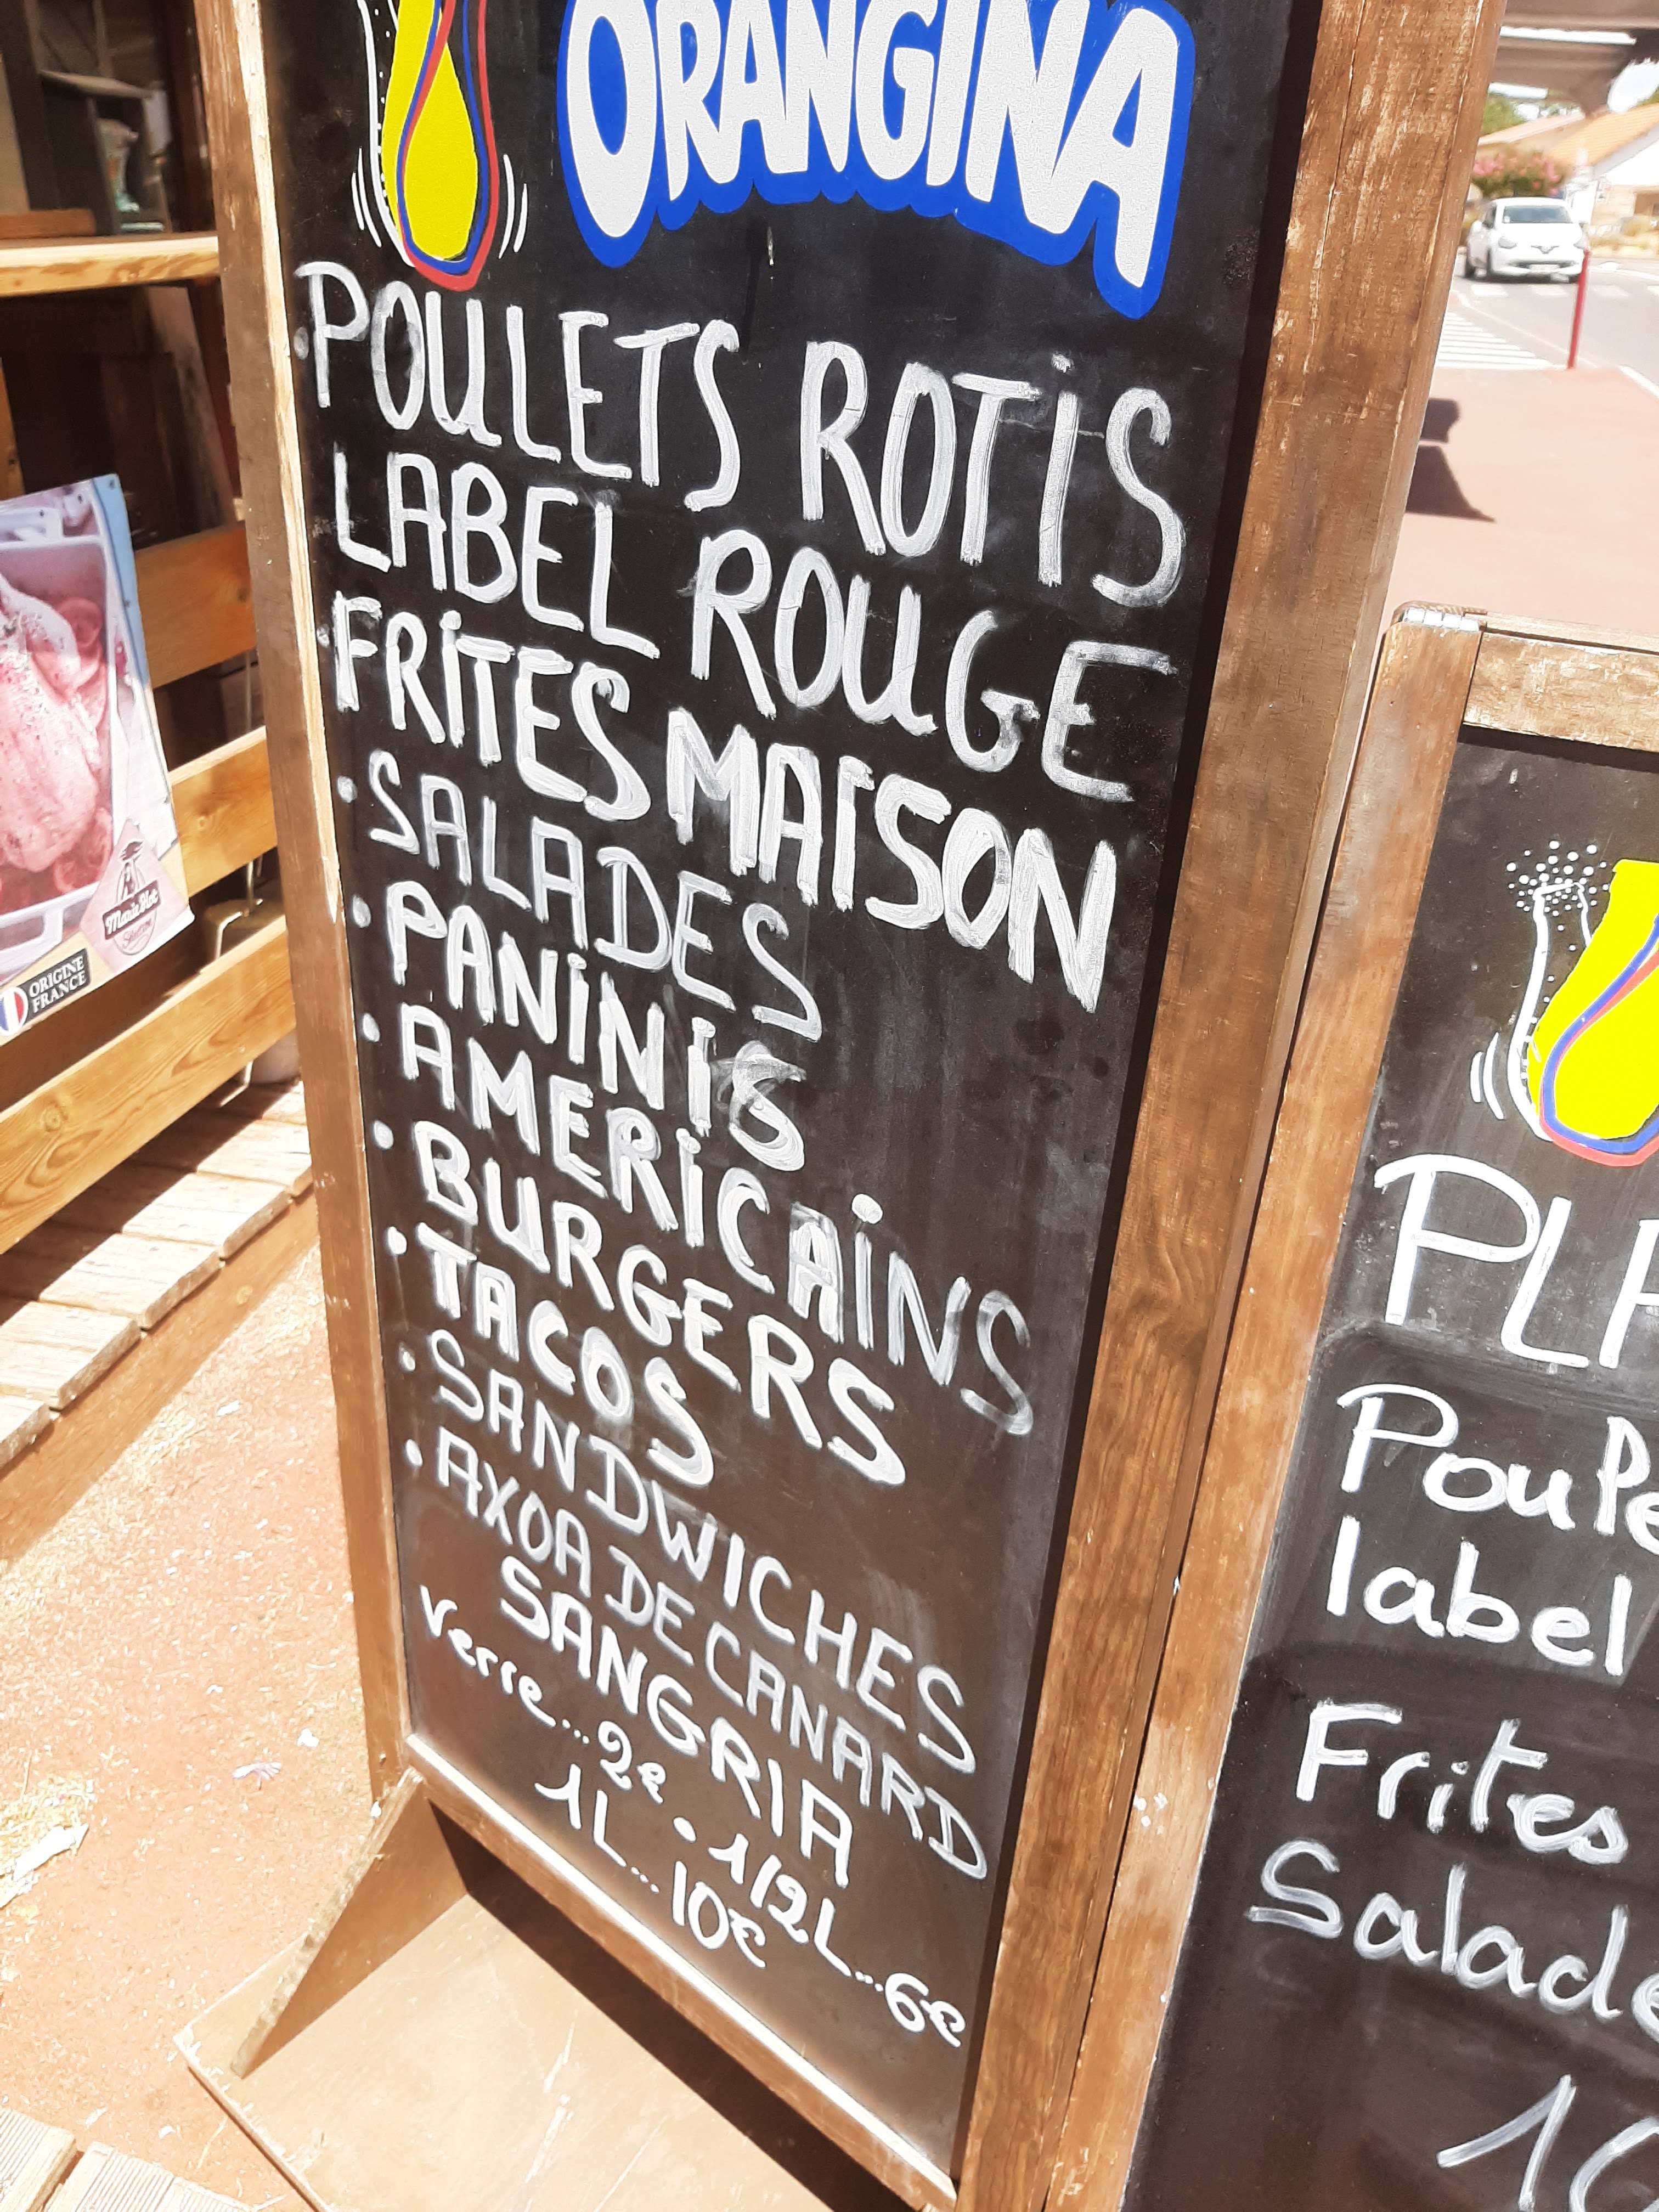 ORANGINA
• POULETS ROTIS
LABEL ROUGE
FRITES MAISON
• SALADES
• PANINIS
• AMERICAINS
• BURGERS
• TACOS
• SANDWICHES
• AXOA DE CANARD
SANGRIA
Verre...2€ • 1/2L...6€
1L...10€
Marie Hot
ORIGINE
FRANCE
label
Frites